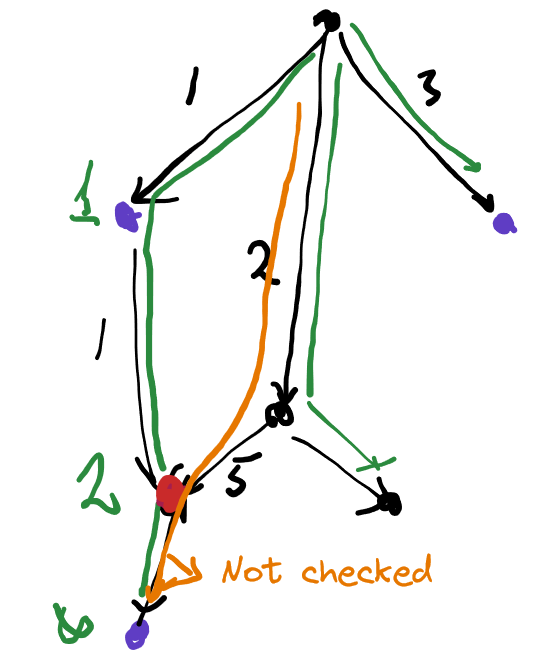 1
3
1
2
1
2
5
Not checked